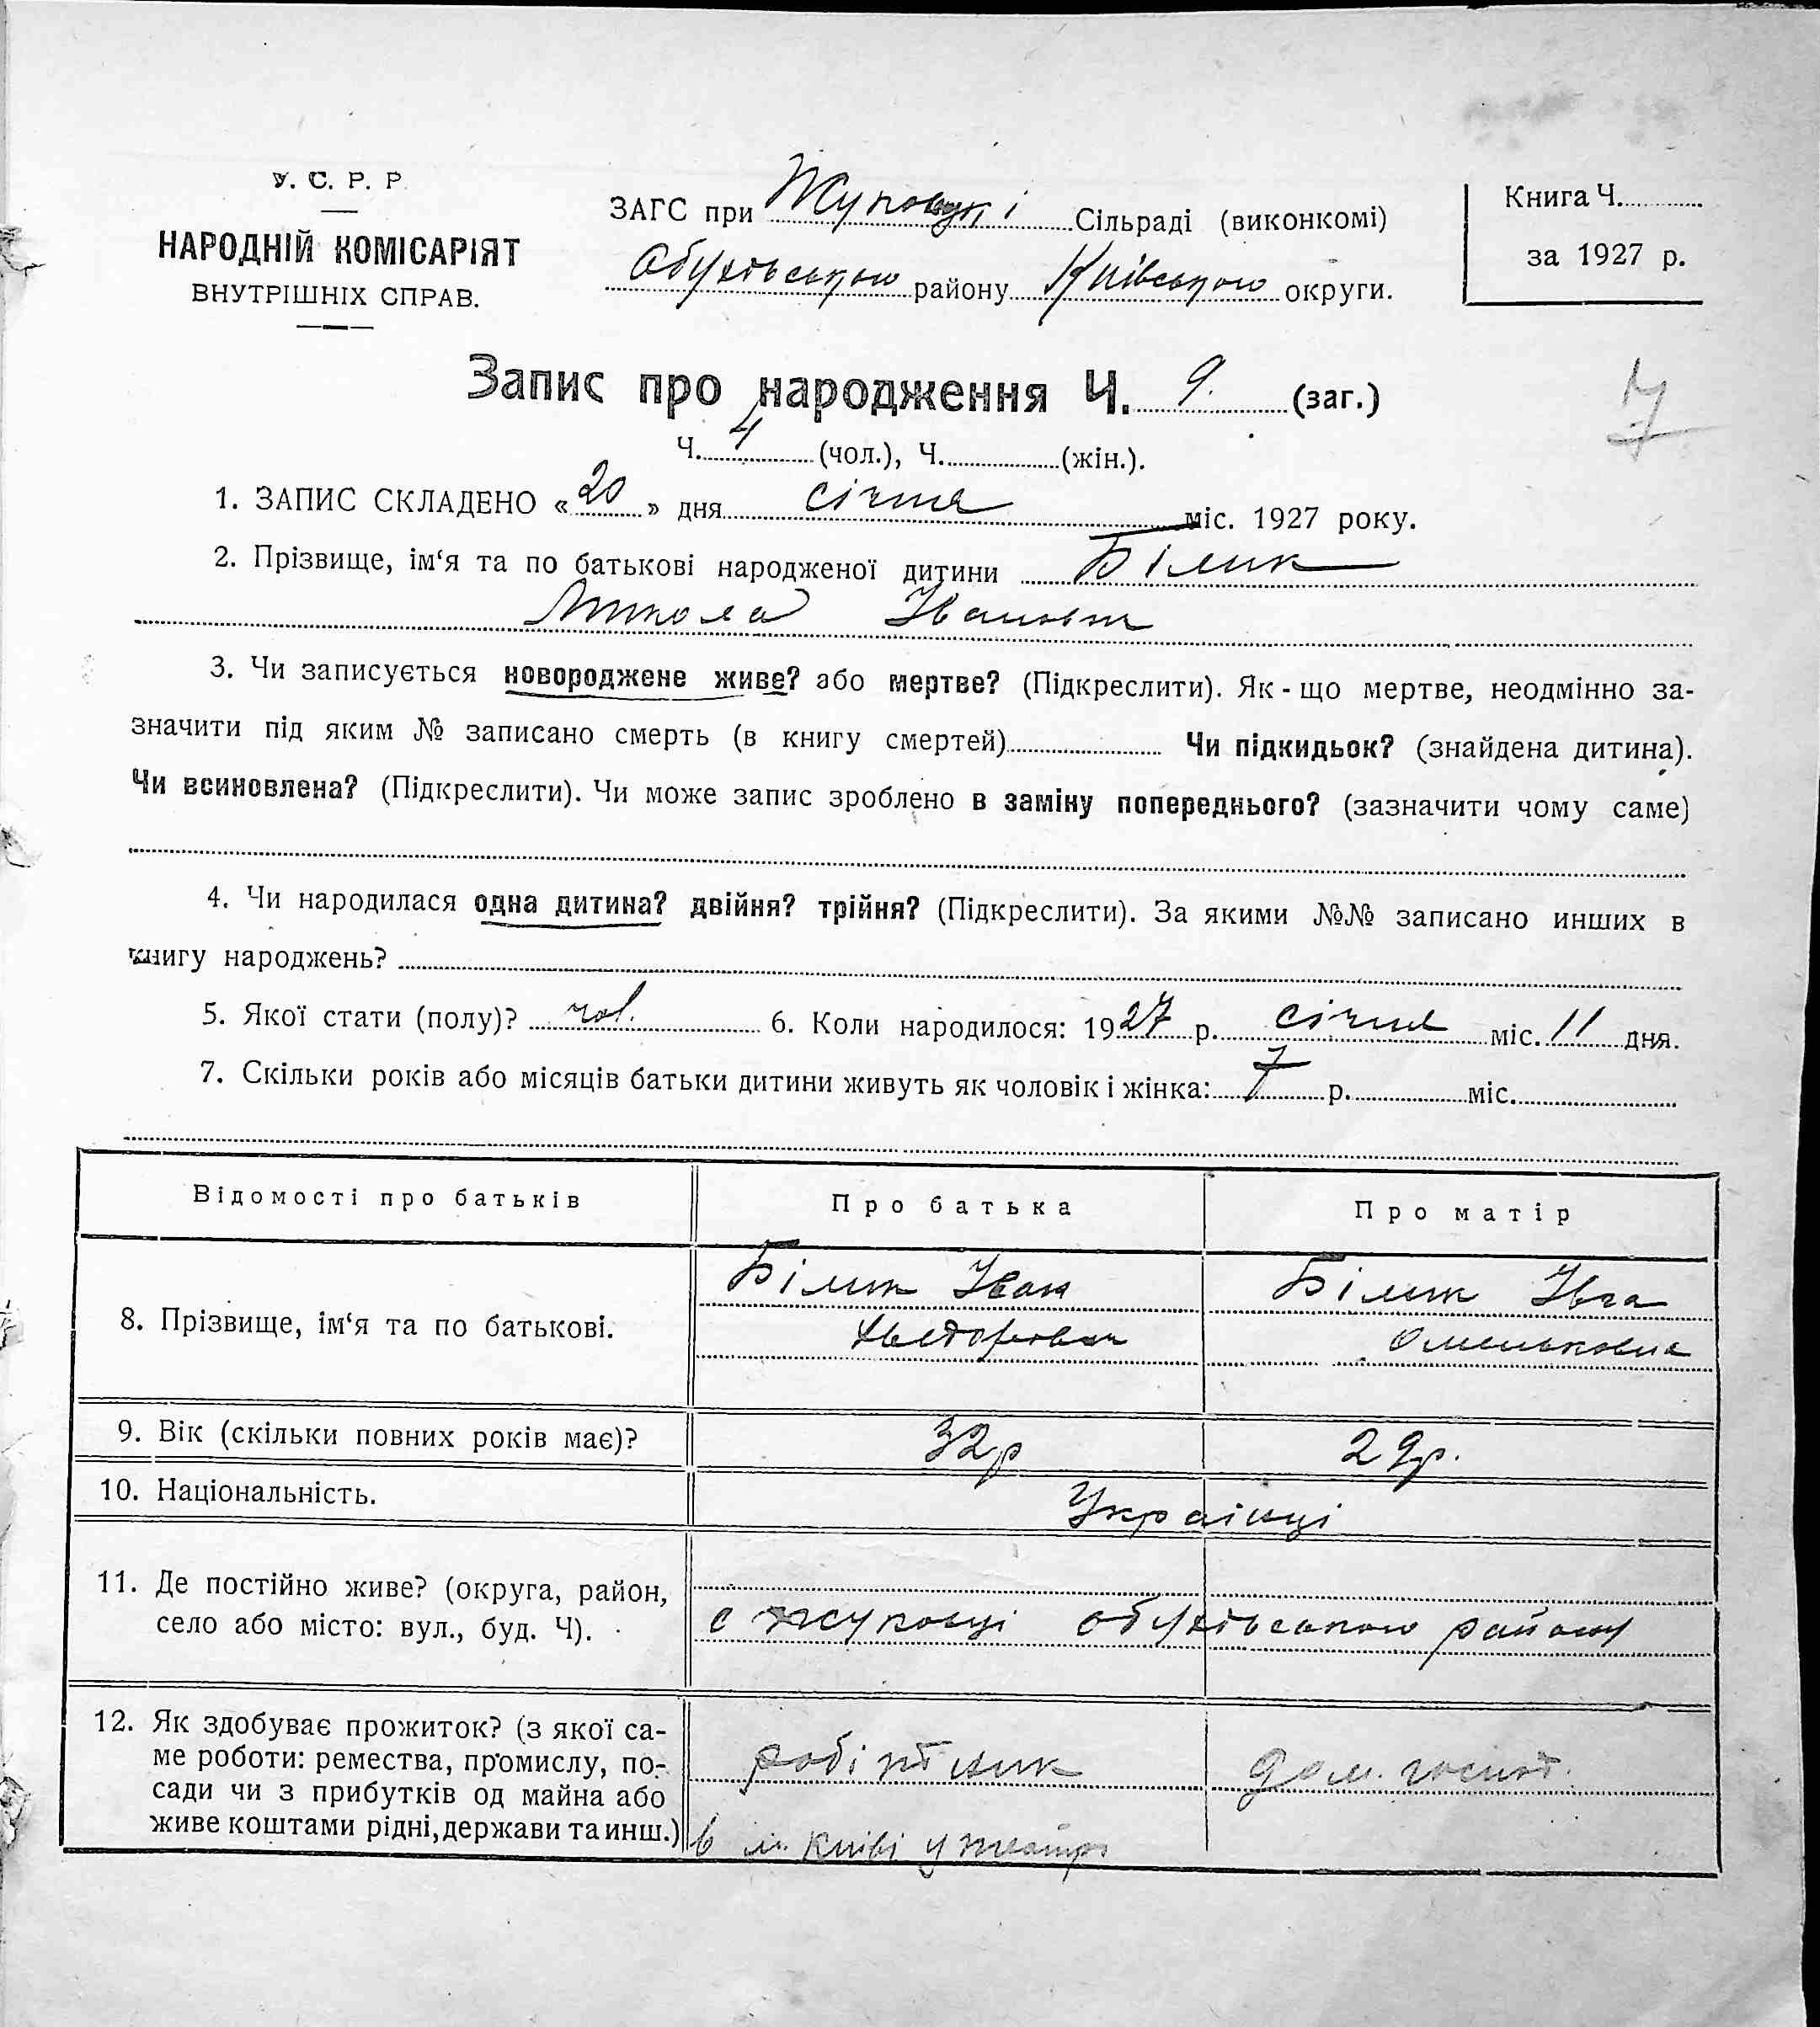 У. С. Р. Р.
НАРОДНІЙ КОМІСАРІЯТ
ВНУТРІШНІХ СПРАВ.
ЗАГС при Жуковці Сільраді (виконкомі)
Обухівського району Київського округи.
Книга Ч.
за 1927 р.
Запис про народження Ч. 9. (заг.)
7
Ч. 4 (чол.), Ч. (жін.).
1. ЗАПИС СКЛАДЕНО «20» дня січня міс. 1927 року.
2. Прізвище, ім‘я та по батькові народженої дитини Білик
Микола Іванович
3. Чи записується новороджене живе? або мертве? (Підкреслити). Як-що мертве, неодмінно за-
значити під яким № записано смерть (в книгу смертей) Чи підкидьок? (знайдена дитина).
Чи всиновлена? (Підкреслити). Чи може запис зроблено в заміну попереднього? (зазначити чому саме)
4. Чи народилася одна дитина? двійня? трійня? (Підкреслити). За якими №№ записано инших в
книгу народжень?
5. Якої стати (полу)? чол. 6. Коли народилося: 1927 р. січня міс. 11 дня.
7. Скільки років або місяців батьки дитини живуть як чоловік і жінка: 7 р. міс.
Відомості про батьків Про батька Про матір
8. Прізвище, ім‘я та по батькові.
Білик Іван
Хведорович
Білик Івга
9. Вік (скільки повних років має)? 32р 29р.
10. Національність. Українці
11. Де постійно живе? (округа, район,
село або місто: вул., буд. Ч).
с Жуковці Обухівського району
12. Як здобуває прожиток? (з якої са-
ме роботи: ремества, промислу, по-
сади чи з прибутків од майна або
живе коштами рідні, держави та инш.)
робітник
в м. Київі у театрі
дом. господ.